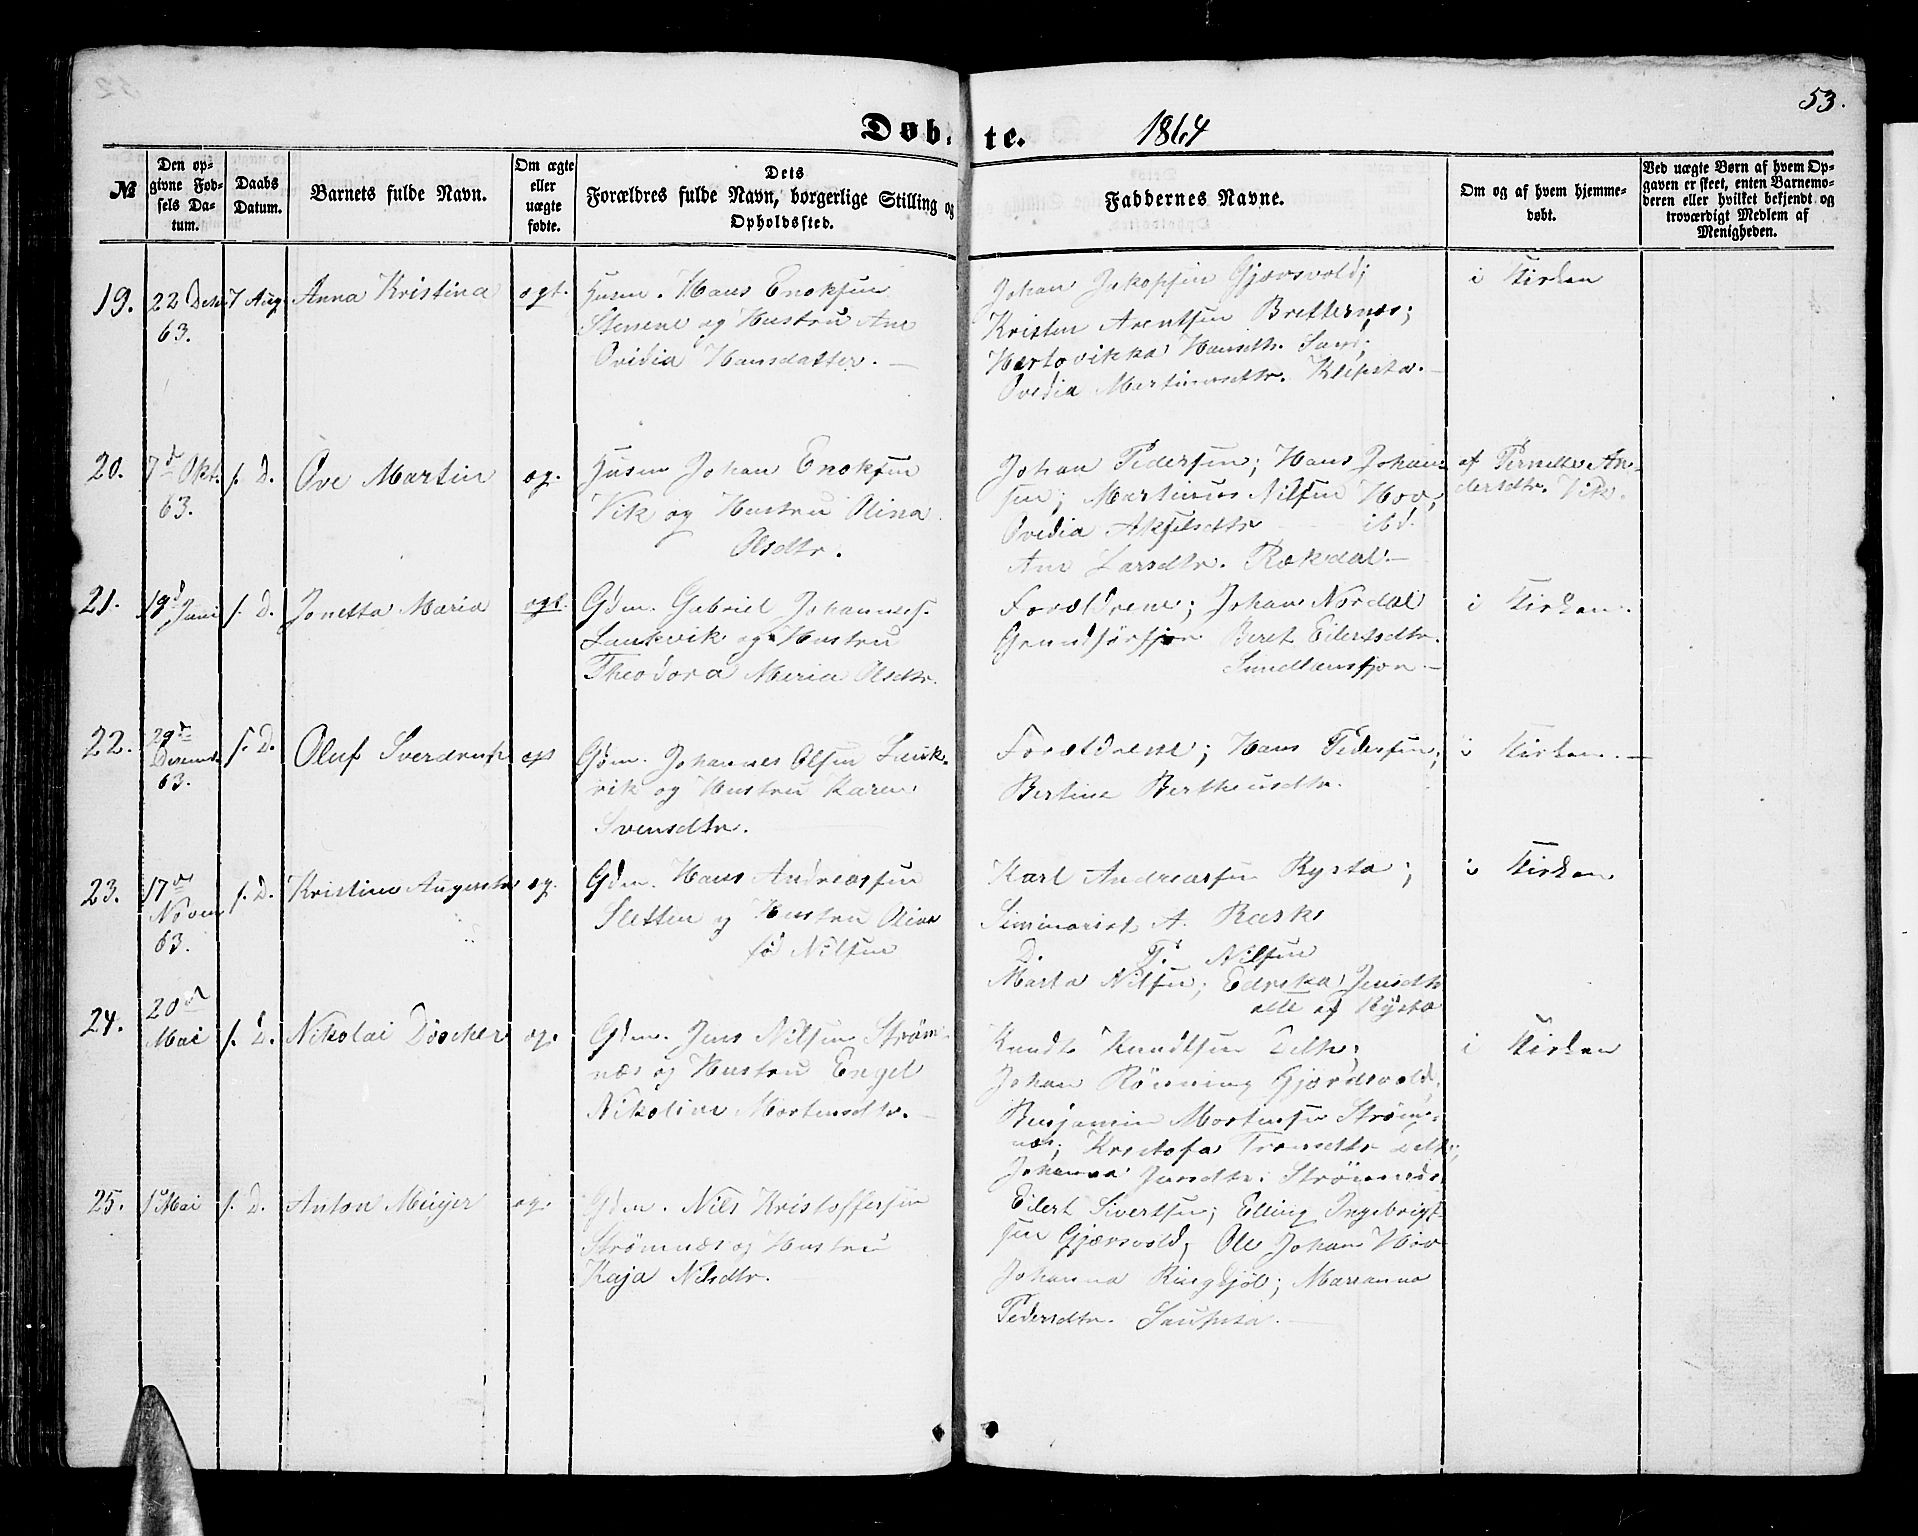 53.
Døb- te. 1864
№
Den op-
givne Fød-
sels Da-
tum.
Daabs
Datum.
Barnets fulde Navn.
Om ægte
eller
uægte
fødte.
Dets
Forældres fulde Navn, borgerlige Stilling og
Opholdssted.
Faddernes Navne.
Om og af hvem hjemme-
døbt.
Ved uægte Børn af hvem Op-
gaven er skeet, enten Barnemo-
deren eller hvilket bekjendt og
troværdigt Medlem af
Menigheden.
19.
22 Des
63.
7 Aug
Anna Kristina
egt.
Husm. Hans Enoksen
Stenene og Hustru Ane
Ovidia Hansdatter. —
Johan Jakopsen Gjærsvold;
Kristen Arentsen Brettenes;
Hartovikka Hansdtr. Sand;
Ovedia Martinusdtr. Klepsta. —
i Kirken
20.
7d Okt.
63.
s. D.
Ove Martin
eg.
Husm Johan Enoksen
Vik og Hustru Olina
Olsdtr.
Johan Pedersen; Hans Johan-
sen; Martinus Nilsen Hov;
Ovedia Akselsdtr ibd.
Ane Larsdtr. Rekdal. —
af Pernille An-
dersdtr. Vik.
21.
19d
Juni
s. D.
Jonetta Maria
egt.
Gdm. Gabriel Johanness.
Laukvik og Hustru
Theodora Maria Olsdtr.
Forældrene; Johan Nordal
Grundførfjor Beret Eilertsdtr.
Sundlansfjor —
i Kirken.
22.
29d
Desemb
63.
s. D.
Oluf Sverdrup
egt
Gdm. Johannes Olsen Lauk-
vik og Hustru Karen
Svensdtr.
Forældrene; Hans Pedersen;
Bertine Bertheusdtr.
i Kirken. —
23.
17d
Novem
63.
s. D.
Kristine Augusta
eg.
Gdm. Hans Andreassen
Sletten og Hustru Olina
fø Nilsen
Karl Andreassen Rysta;
Siminarist A. Rask
D. T. Nilsen
Marta Nilsen; Edrika Jensdtr
alle af Rysta
i Kirken
24.
20d
Mai
s. D.
Nikolai Döscher
eg.
Gdm. Jens Nilsen Strøm-
næs og Hustru Engel
Nikoline Mortensdtr. —
Knudt Knudtsen Delk;
Johan Rönning Gjærdsvold,
Benjamin Mortensen Strøm-
næs; Krestofa Tronsdtr Delk;
Johanna Jensdtr. Strömnæs
i Kirken
25.
1s Mai
s. D.
Anton Meyer
eg.
Gdm. Nils Kristoffersen
Strømnæs og Hustru
Kaja Nilsdtr.
Eilert Sivertsen; Elling Ingebrigt-
sen Gjærsvold; Ole Johan Hov
Johanna Ringsjöl; Marianna
Pedersdtr. Saupsta. —